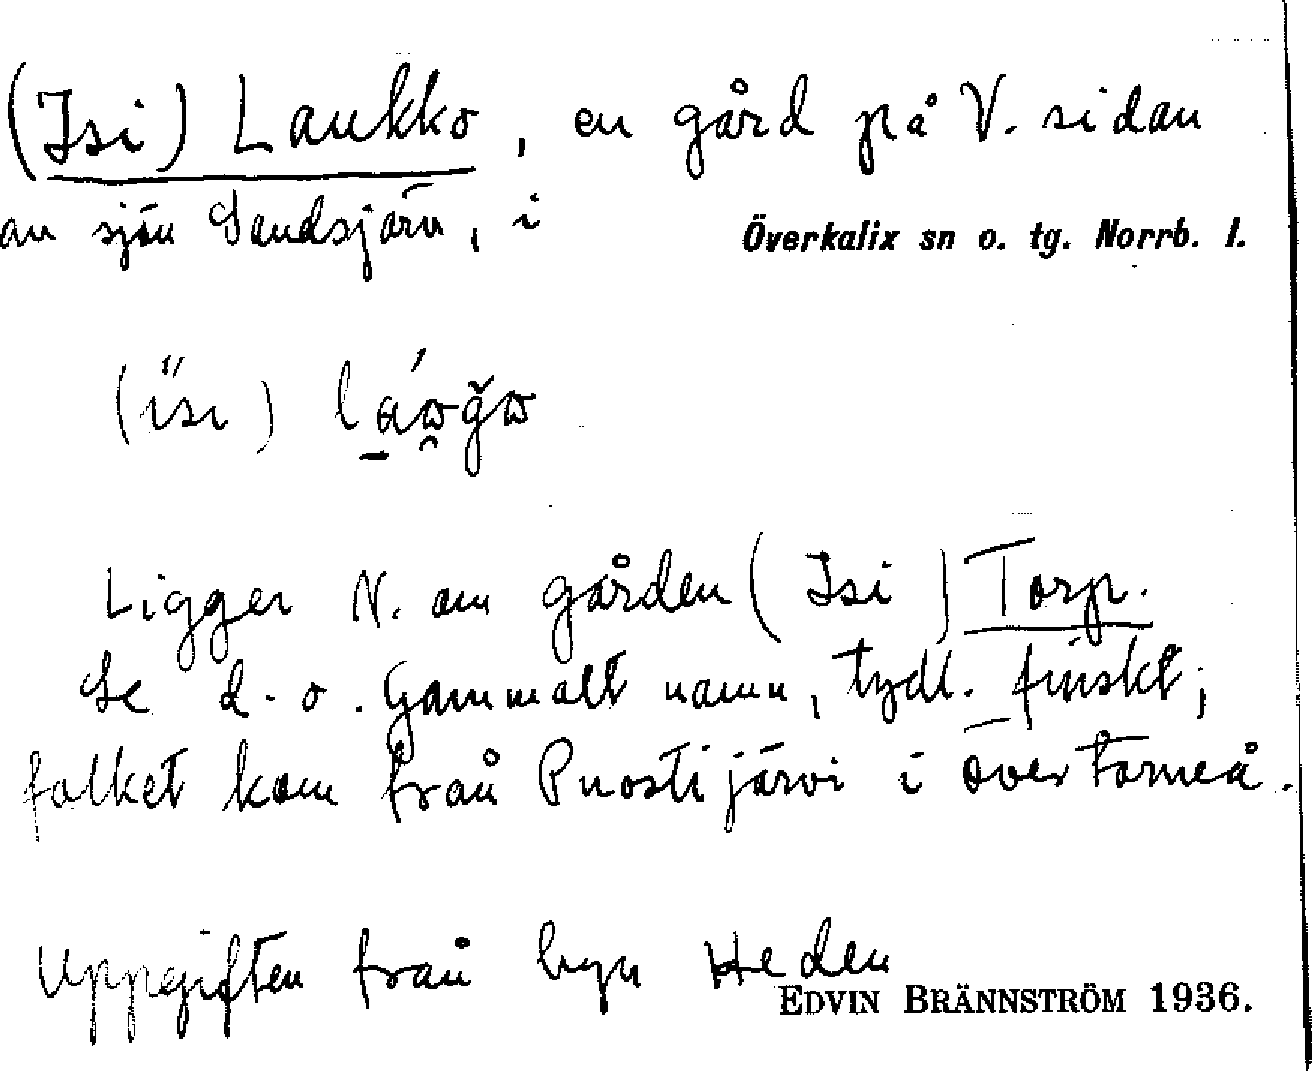 (Isi) Laukko, en gård på V. sidan
om sjön Sandsjärv, i Överkalix sn o. tg. Norrb. l.
Ligger N. om gården (Isi) Torp.
Se d. o. Gammalt namn, tydl. finskt;
folket kom från Puostijärvi i Övertorneå.
Uppgiften från byn Heden
EDVIN BRÄNNSTRÖM 1936.